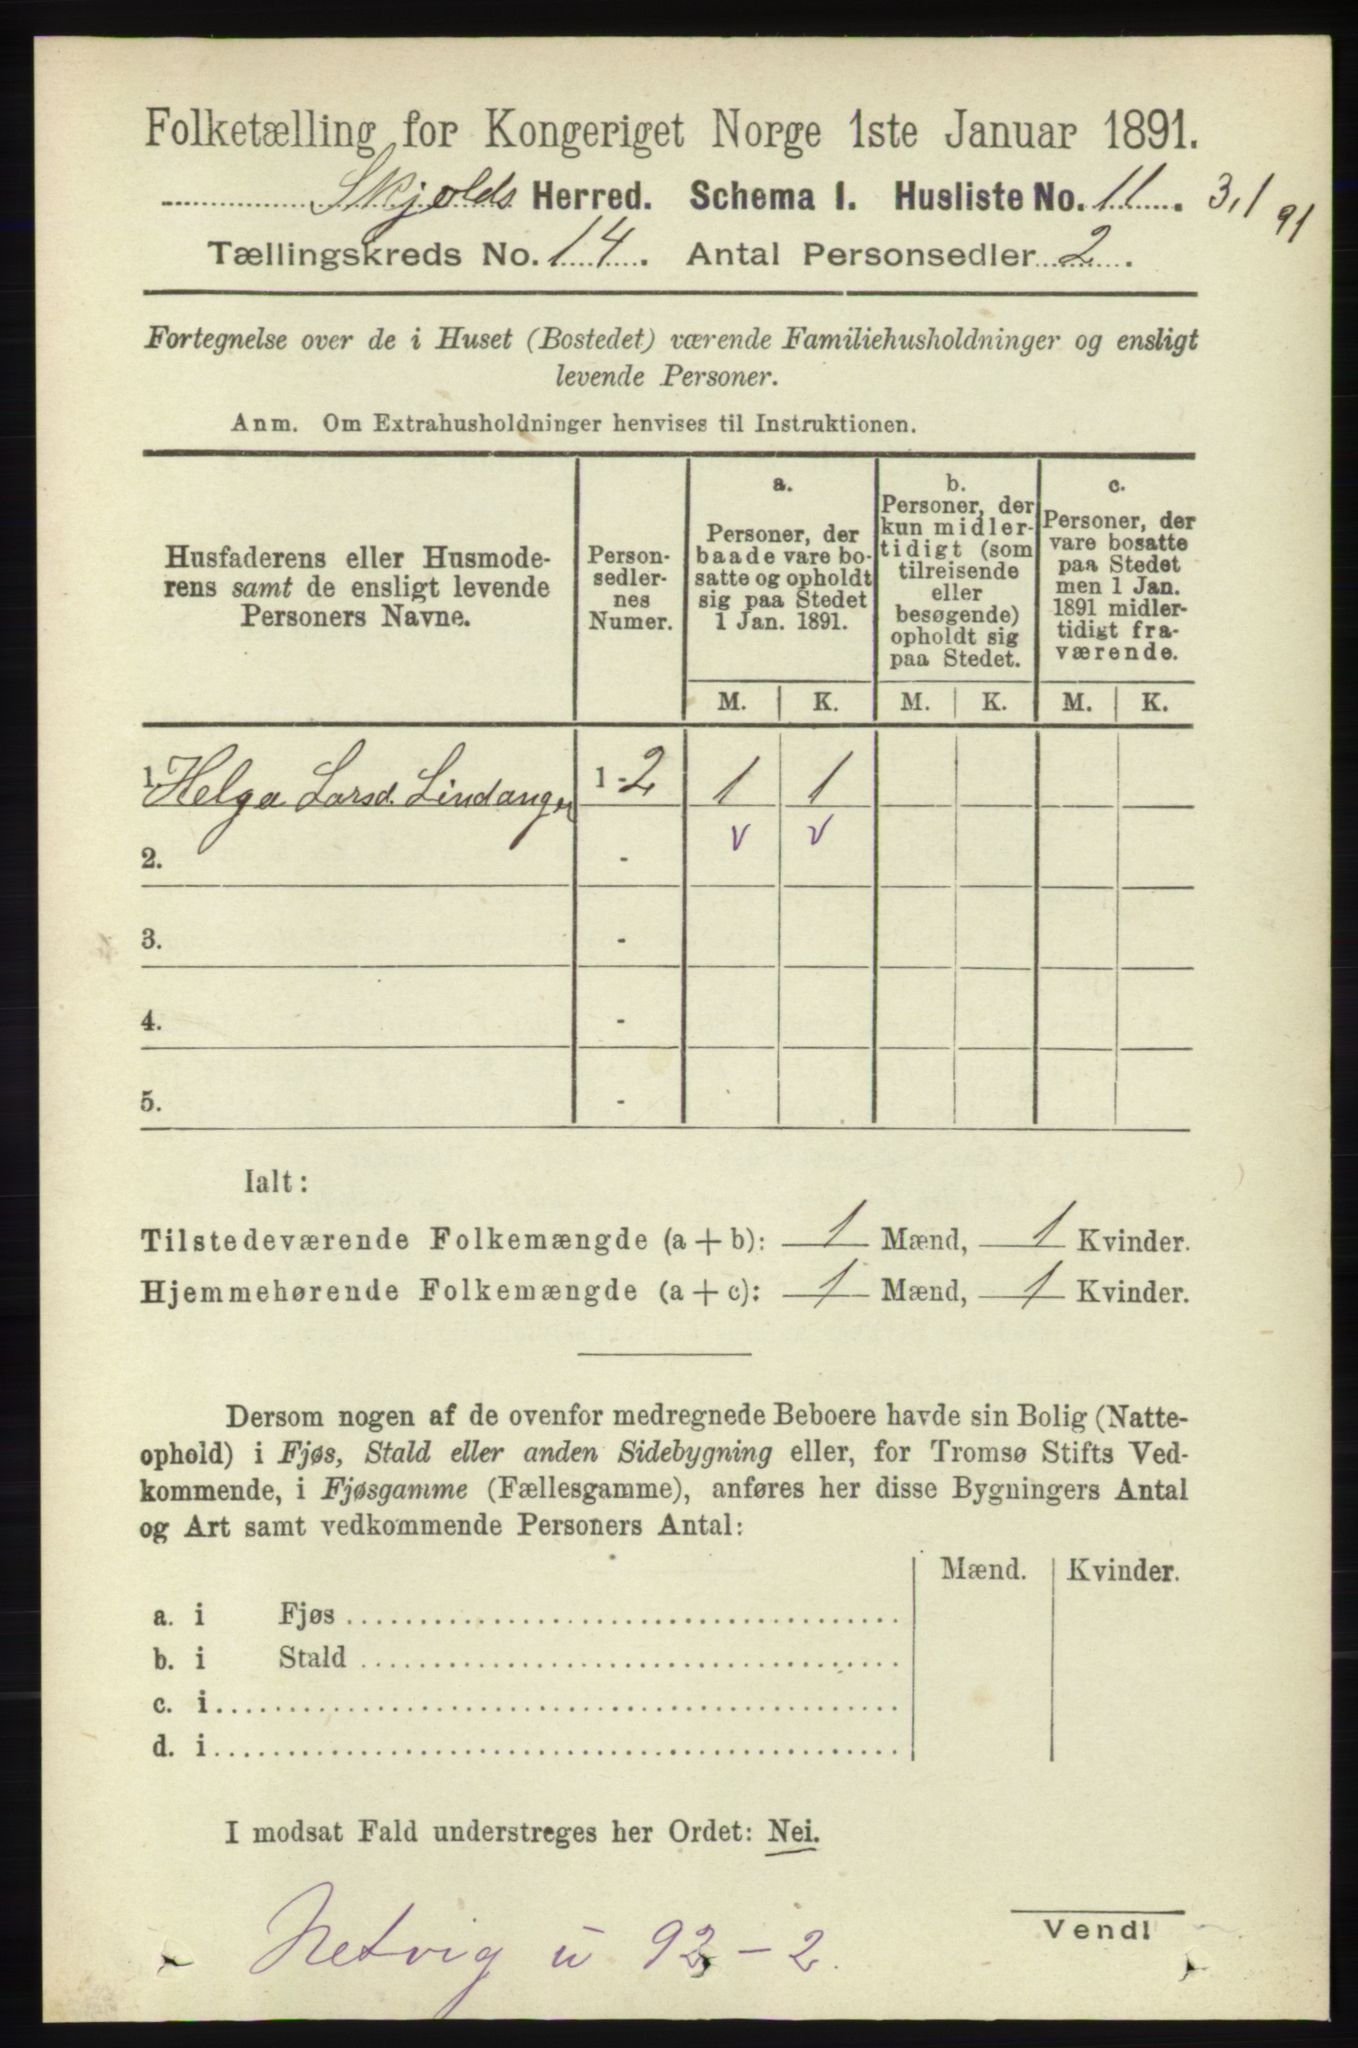 Folketælling for Kongeriget Norge 1ste Januar 1891.
Skjolds Herred. Schema I. Husliste No. 11. 3/1 91
Tællingskreds No. 14. Antal Personsedler 2.
Fortegnelse over de i Huset (Bostedet) værende Familiehusholdninger og ensligt
levende Personer.
Anm. Om Extrahusholdninger henvises til Instruktionen.
Husfaderens eller Husmode-
rens samt de ensligt levende
Personers Navne.
Person-
sedler-
nes
Numer.
a.
Personer, der
baade vare bo-
satte og opholdt
sig paa Stedet
1 Jan. 1891.
b.
Personer, der
kun midler-
tidigt (som
tilreisende
eller
besøgende)
opholdt sig
paa Stedet.
c.
Personer, der
vare bosatte
paa Stedet
men 1 Jan.
1891 midler-
tidigt fra-
værende.
M. K. M. K. M. K.
1. Helga Larsd. Lindanger 1-2 1 1
v v
2. -
3. -
4. -
5. -
Ialt:
Tilstedeværende Folkemængde (a + b): 1 Mænd, 1 Kvinder.
Hjemmehørende Folkemængde (a + c): 1 Mænd, 1 Kvinder.
Dersom nogen af de ovenfor medregnede Beboere havde sin Bolig (Natte-
ophold) i Fjøs, Stald eller anden Sidebygning eller, for Tromsø Stifts Ved-
kommende, i Fjøsgamme (Fællesgamme), anføres her disse Bygningers Antal
og Art samt vedkommende Personers Antal:
Mænd. Kvinder.
a. i Fjøs
b. i Stald
c. i
d. i
I modsat Fald understreges her Ordet: Nei.
Vend!
Netvig u 92 - 2.